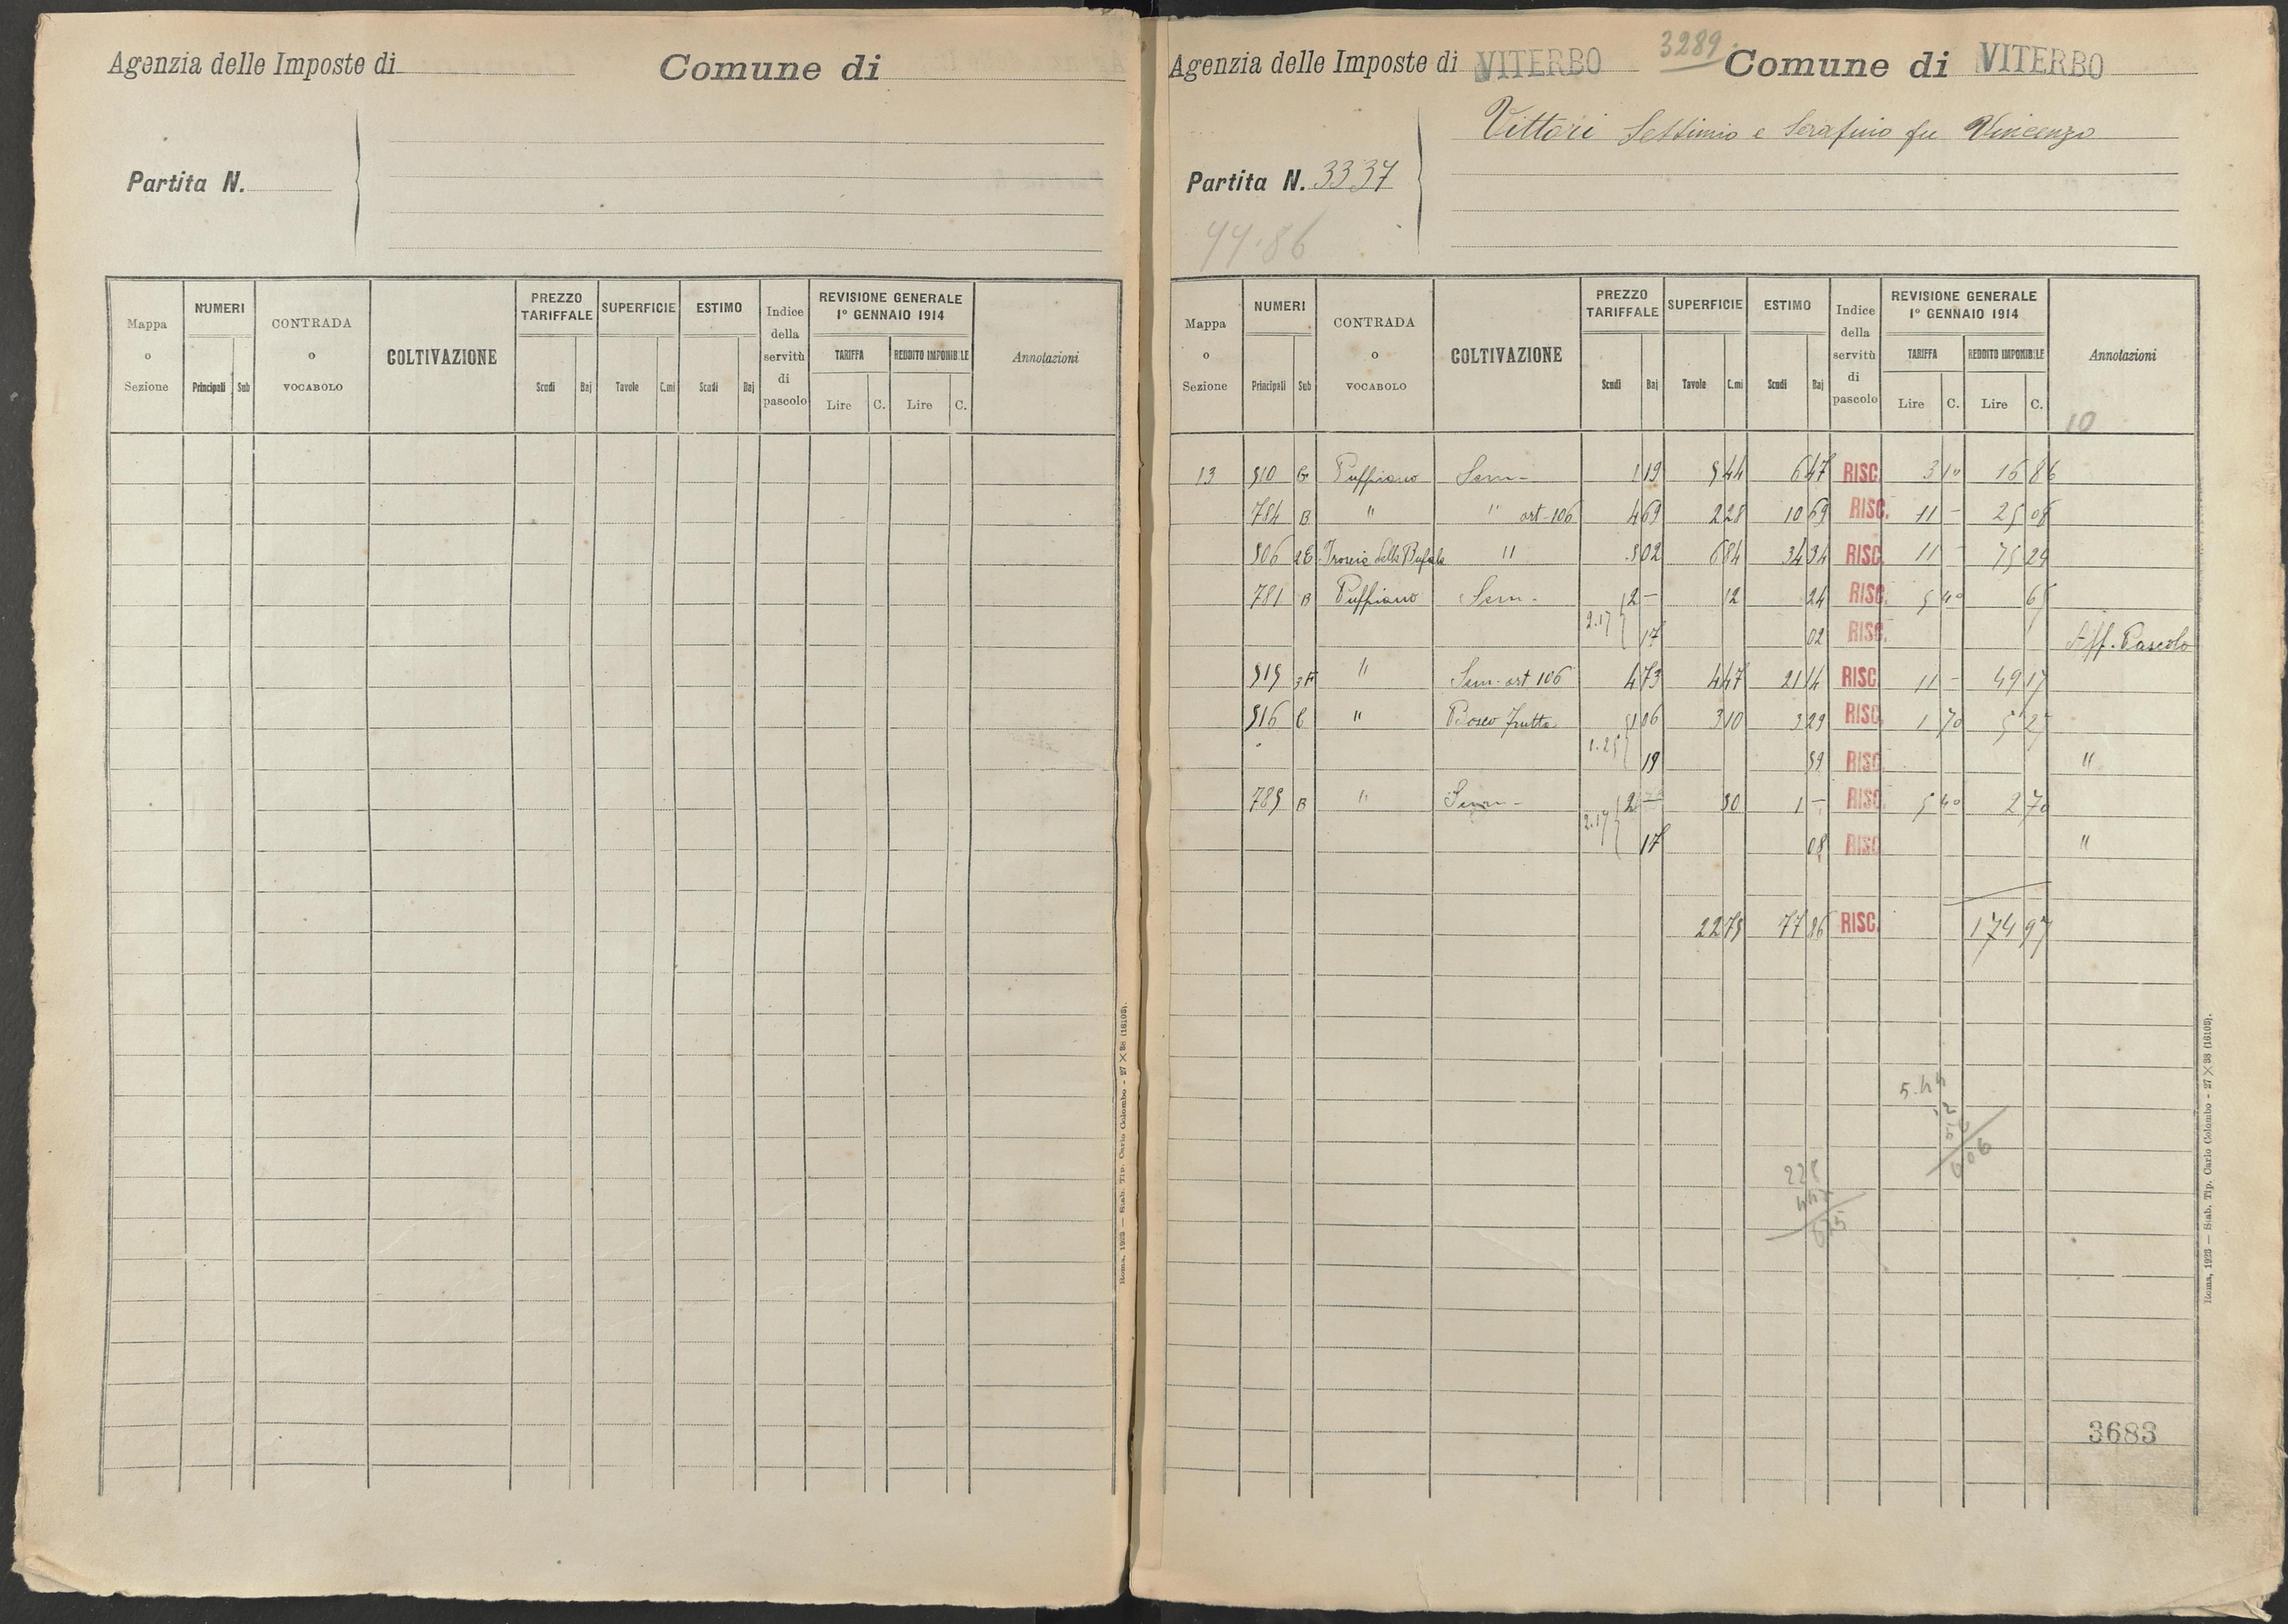 Agenzia delle Imposte di
Comune di
Partita N.
Mappa o Sezione
NUMERI
Principali Sub
CONTRADA o VOCABOLO
COLTIVAZIONE
PREZZO TARIFFALE
Scudi Baj
SUPERFICIE
Tavole C.mi
ESTIMO
Scudi Baj
Indice della servitù di pascolo
REVISIONE GENERALE
1° GENNAIO 1914
TARIFFA REDDITO IMPONIBILE
Lire C. Lire C.
Annotazioni
Roma, 1923 — Stab. Tip. Carlo Colombo - 27 X 38 (16108).
Agenzia delle Imposte di VITERBO 3289 Comune di VITERBO
Vittori Settimio e Serafino fu Vincenzo
Partita N. 3337
Mappa o Sezione
NUMERI
Principali Sub
CONTRADA o VOCABOLO
COLTIVAZIONE
PREZZO TARIFFALE
Scudi Baj
SUPERFICIE
Tavole C.mi
ESTIMO
Scudi Baj
Indice della servitù di pascolo
REVISIONE GENERALE
1° GENNAIO 1914
TARIFFA REDDITO IMPONIBILE
Lire C. Lire C.
Annotazioni
10
13 510 G Puffiano Sem- 1 19 5 44 6 47 RISC. 3 10 16 86
784 B " " ort-106 4 69 2 28 10 69 RISC. 11 - 25 08
506 2E della Bufala " 5 02 6 84 34 34 RISC. 11 - 75 24
781 B Puffiano Sem- 2 - 12 24 RISC. 5 40 65
2.17 17 02 RISC. Aff. Pascolo
515 3F " Sem- ort 106 4 73 4 47 21 14 RISC. 11 - 49 17
516 C " Bosco frutta 1 06 3 10 3 29 RISC. 1 70 5 27
1.25 19 59 RISC. "
785 B " Sem- 2 - 50 1 - RISC. 5 40 2 70
2.17 17 08 RISC. "
22 75 77 86 RISC. 174 97
5.44
12
50
606
228
447
675
3683
Roma, 1923 — Stab. Tip. Carlo Colombo - 27 X 38 (16108).